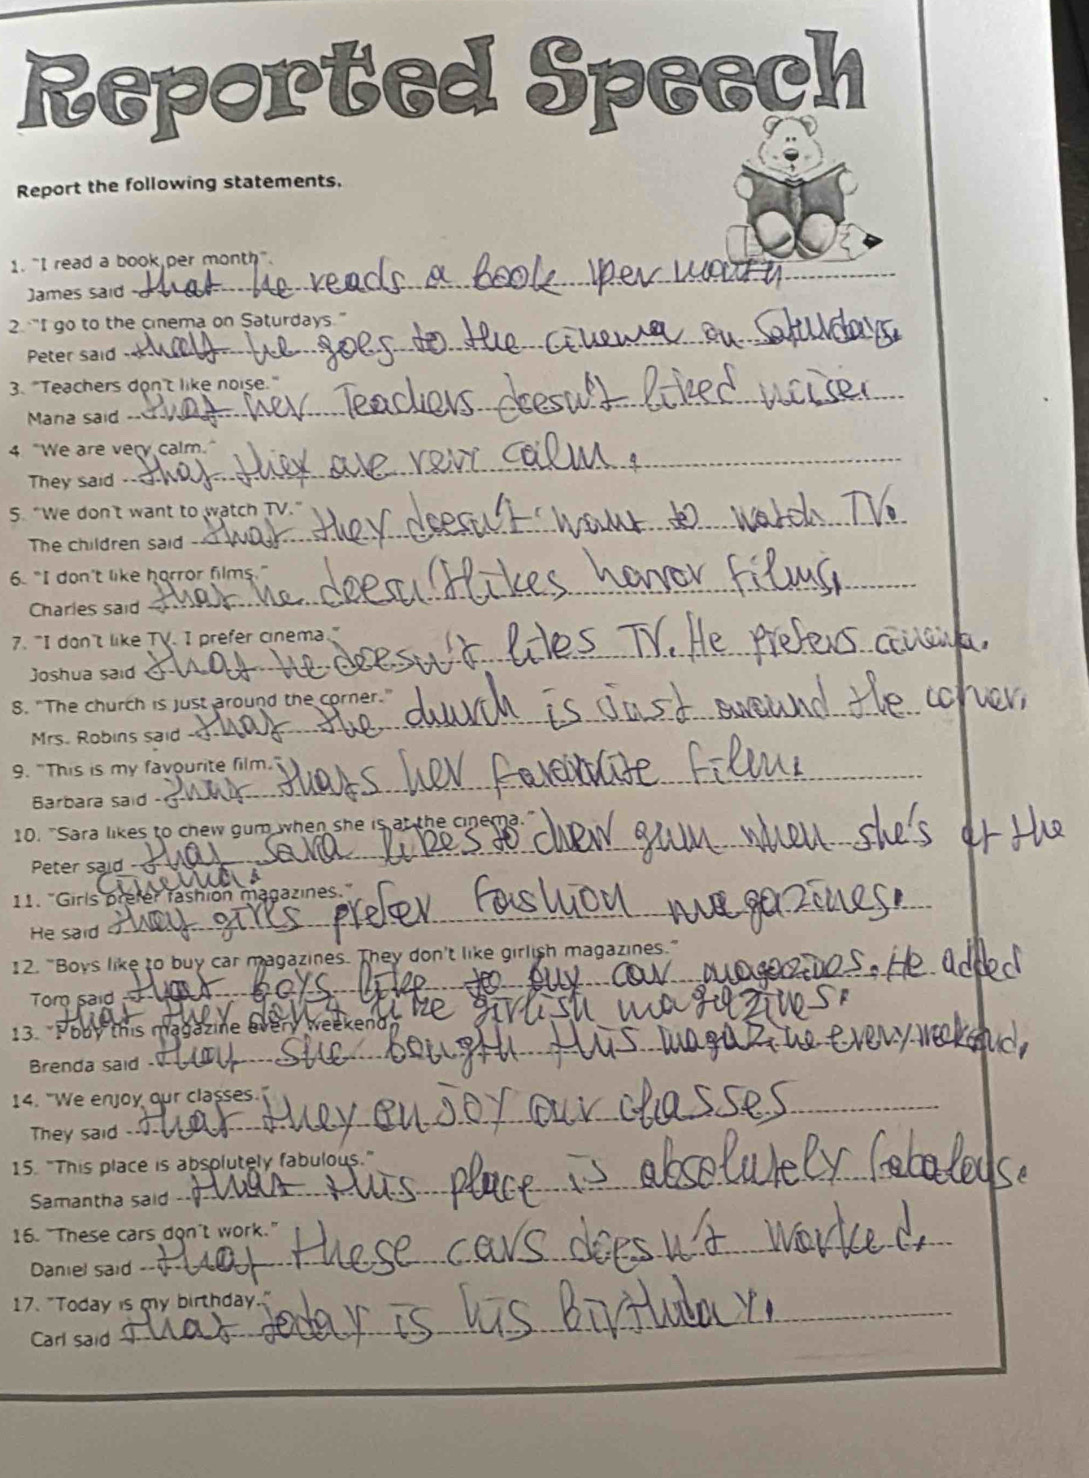 Reported Speech
Report the following statements.
1. "I read a book per month".
James said that he reads a book per month
2. "I go to the cinema on Saturdays."
Peter said that he goes to the cinema on Saturdays.
3. "Teachers don't like noise."
Maria said that her Teachers doesn't liked noise.
4. "We are very calm."
They said that they are very calm.
5. "We don't want to watch TV."
The children said that they doesn't want to watch TV.
6. "I don't like horror films."
Charles said that he doesn't likes horror films.
7. "I don't like TV. I prefer cinema."
Joshua said that he doesn't likes TV. He prefers cinema.
8. "The church is just around the corner."
Mrs. Robins said that the church is just around the corner.
9. "This is my favourite film."
Barbara said that thats her favourite film.
10. "Sara likes to chew gum when she is at the cinema."
Peter said that Sara likes to chew gum when she's at the
cinema.
11. "Girls prefer fashion magazines."
He said that girls prefer fashion magazines.
12. "Boys like to buy car magazines. They don't like girlish magazines."
Tom said that boys like to buy car magazines. He added
that they don't like girlish magazines.
13. "I buy this magazine every weekend."
Brenda said that she bought this magazine every weekend.
14. "We enjoy our classes."
They said that they enjoy our classes
15. "This place is absolutely fabulous."
Samantha said that this place is absolutely fabalous.
16. "These cars don't work."
Daniel said that these cars doesn't worked.
17. "Today is my birthday."
Carl said that today is his birthday.